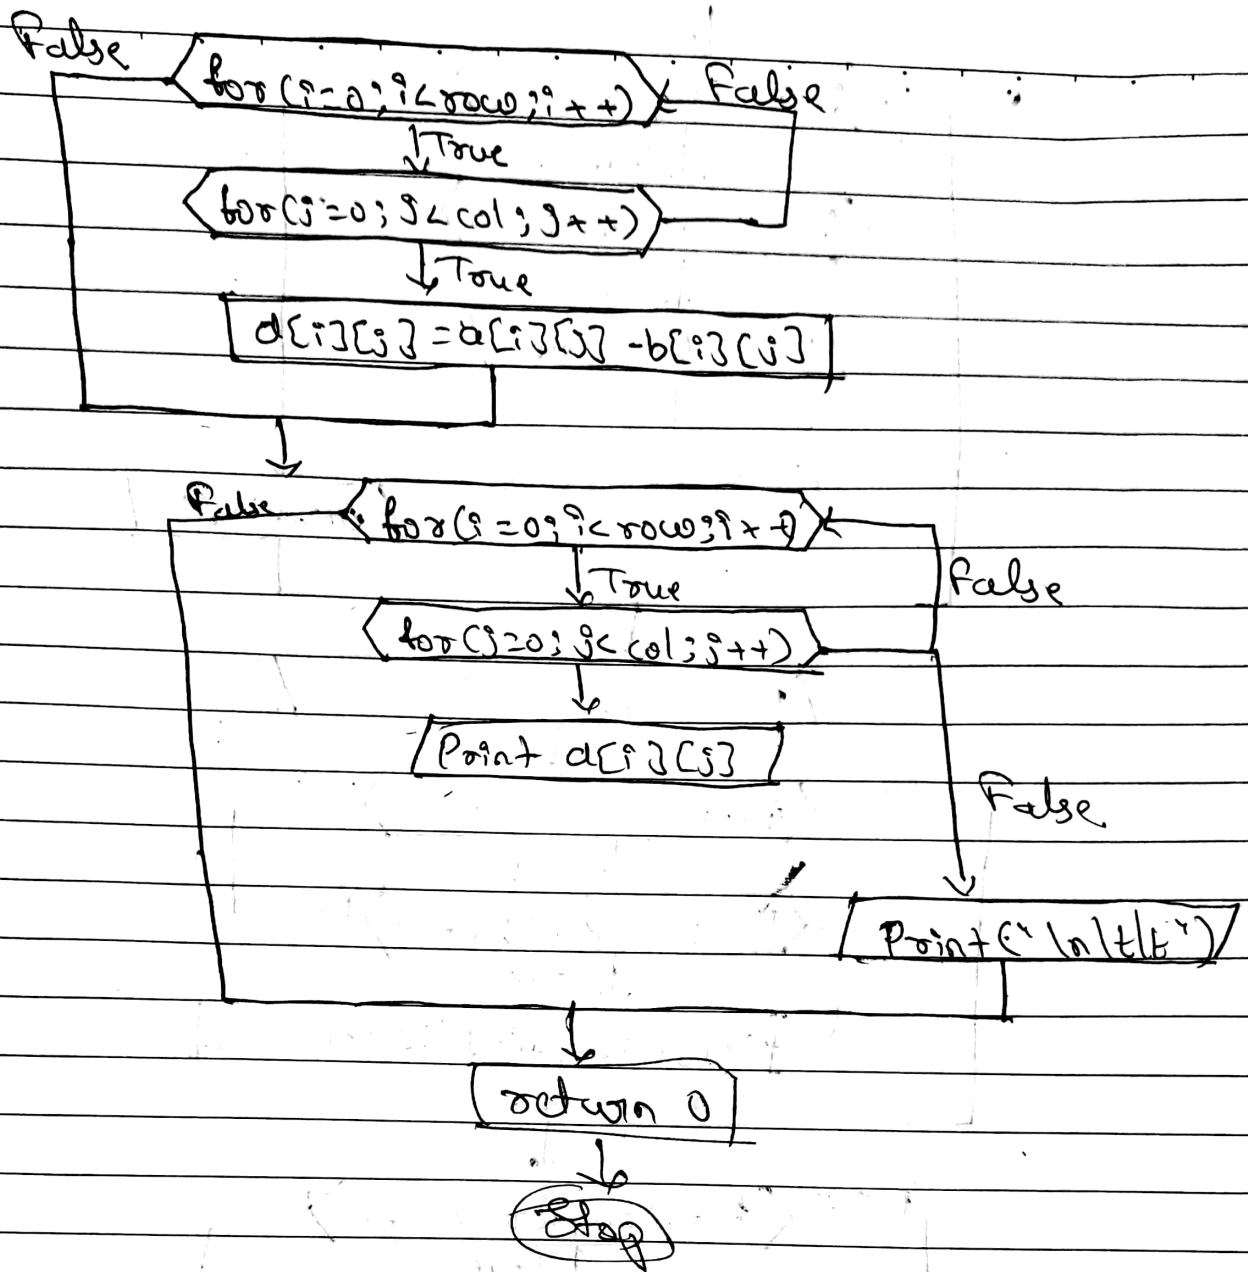 False
for(i=0;i<row;i++)
False
True
for(j=0;j<col;j++)
True
d[i][j]=a[i][j]-b[i][j]
False
for(i=0;i<row;i++)
True
False
for(j=0;j<col;j++)
Print d[i][j]
False
Print("\n\t\t")
return 0
Stop